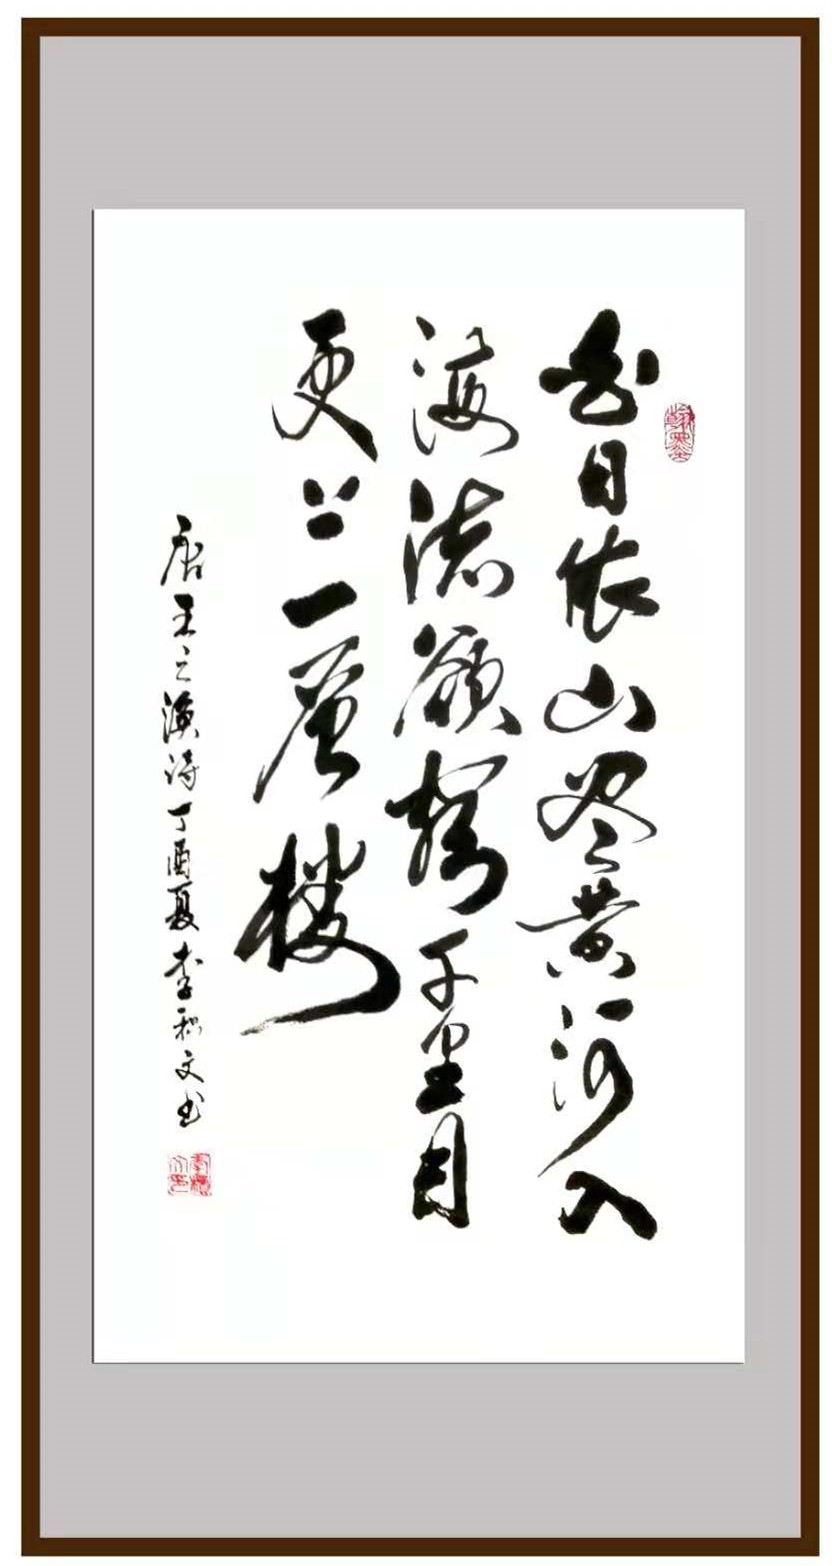 白日依山尽黄河入
海流欲穷千里目
更上一层楼
唐王之涣诗丁酉夏李积文书
翰墨